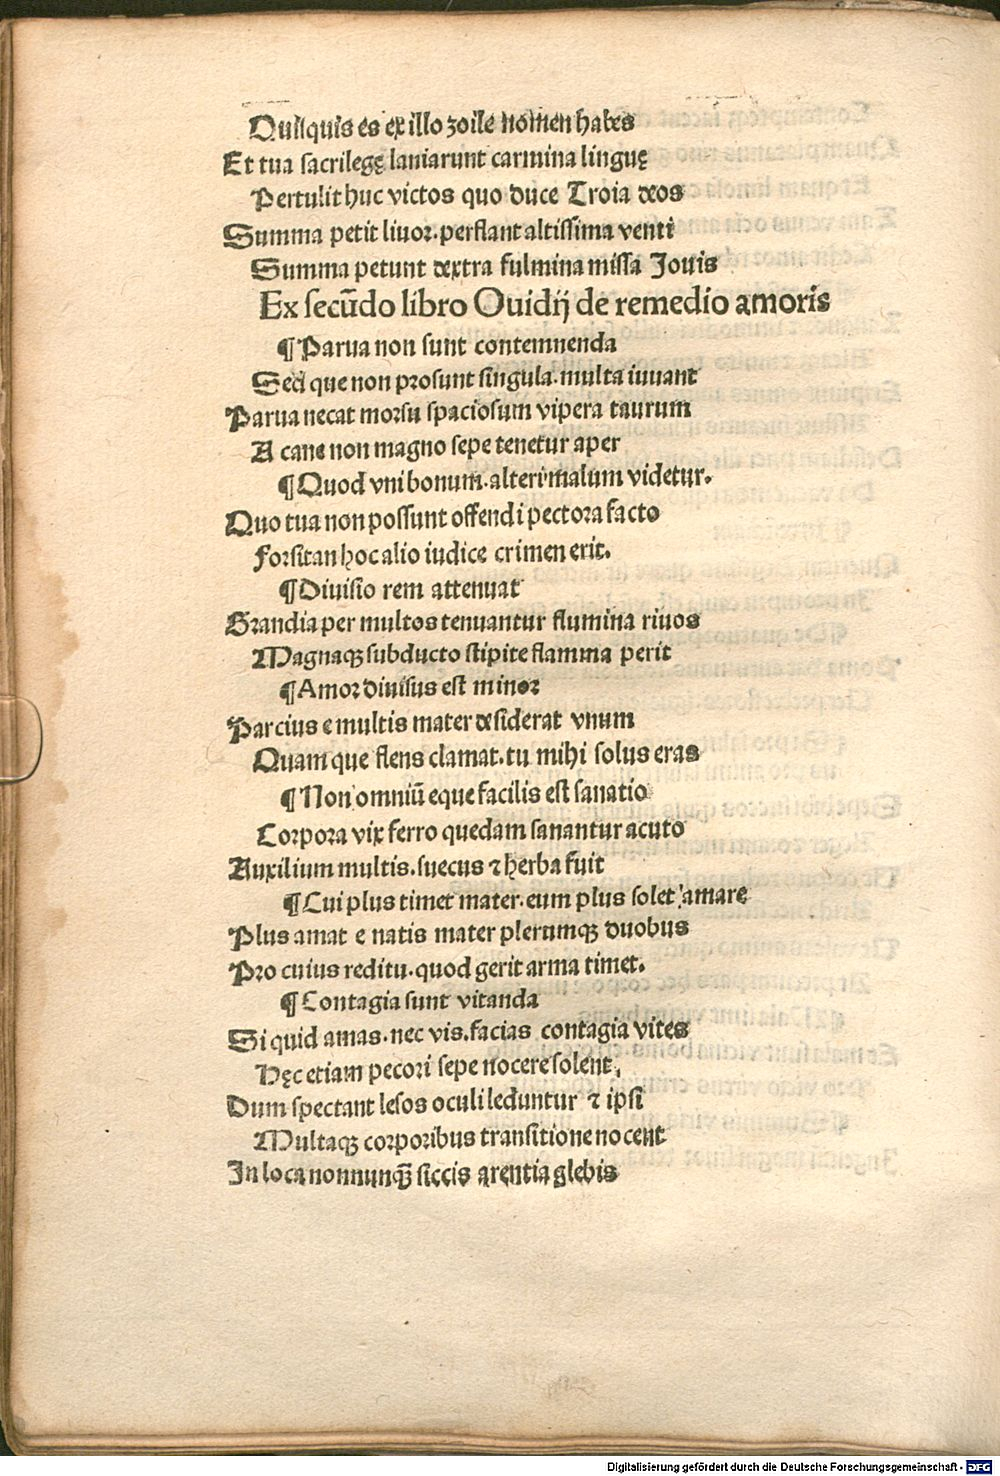 Quisquis es ex illo zoile nomen habes
Et tua sacrilegę laniarunt carmina linguę
Pertulit huc victos quo duce Troia deos
Summa petit liuor. perflant altissima venti
Summa petunt dextra fulmina missa Jouis
Ex secūdo libro Ouidij de remedio amoris
¶ Parua non sunt contemnenda
Sed que non prosunt singula. multa iuuant
Parua necat morsu spaciosum vipera taurum
A cane non magno sepe tenetur aper
¶ Quod vni bonum. alteri malum videtur.
Quo tua non possunt offendi pectora facto
Forsitan hoc alio iudice crimen erit.
¶ Diuisio rem attenuat
Grandia per multos tenuantur flumina riuos
Magnaqꝫ subducto stipite flamma perit
¶ Amor diuisus est minor
Parcius e multis mater desiderat vnum
Quam que flens clamat. tu mihi solus eras
¶ Non omniū eque facilis est sanatio
Corpora vix ferro quedam sanantur acuto
Auxilium multis. suecus ⁊ herba fuit
¶ Cui plus timet mater. eum plus solet amare
Plus amat e natis mater plerumqꝫ duobus
Pro cuius reditu. quod gerit arma timet.
¶ Contagia sunt vitanda
Si quid amas. nec vis. facias contagia vites
Hęc etiam pecori sepe nocere solent.
Dum spectant lesos oculi leduntur ⁊ ipsi
Multaqꝫ corporibus transitione nocent
In loca nonnunqꝫ̄ siccis arentia glebis
Digitalisierung gefördert durch die Deutsche Forschungsgemeinschaft - DFG